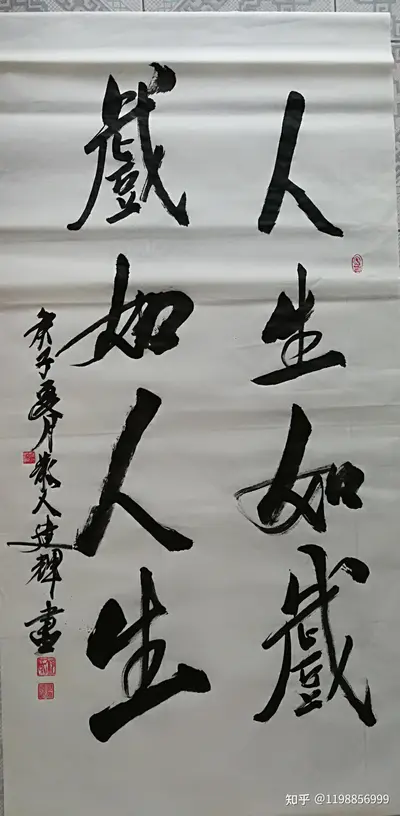 人生如戲
戲如人生
庚子夏月敬文建輝書
知乎 @1198856999